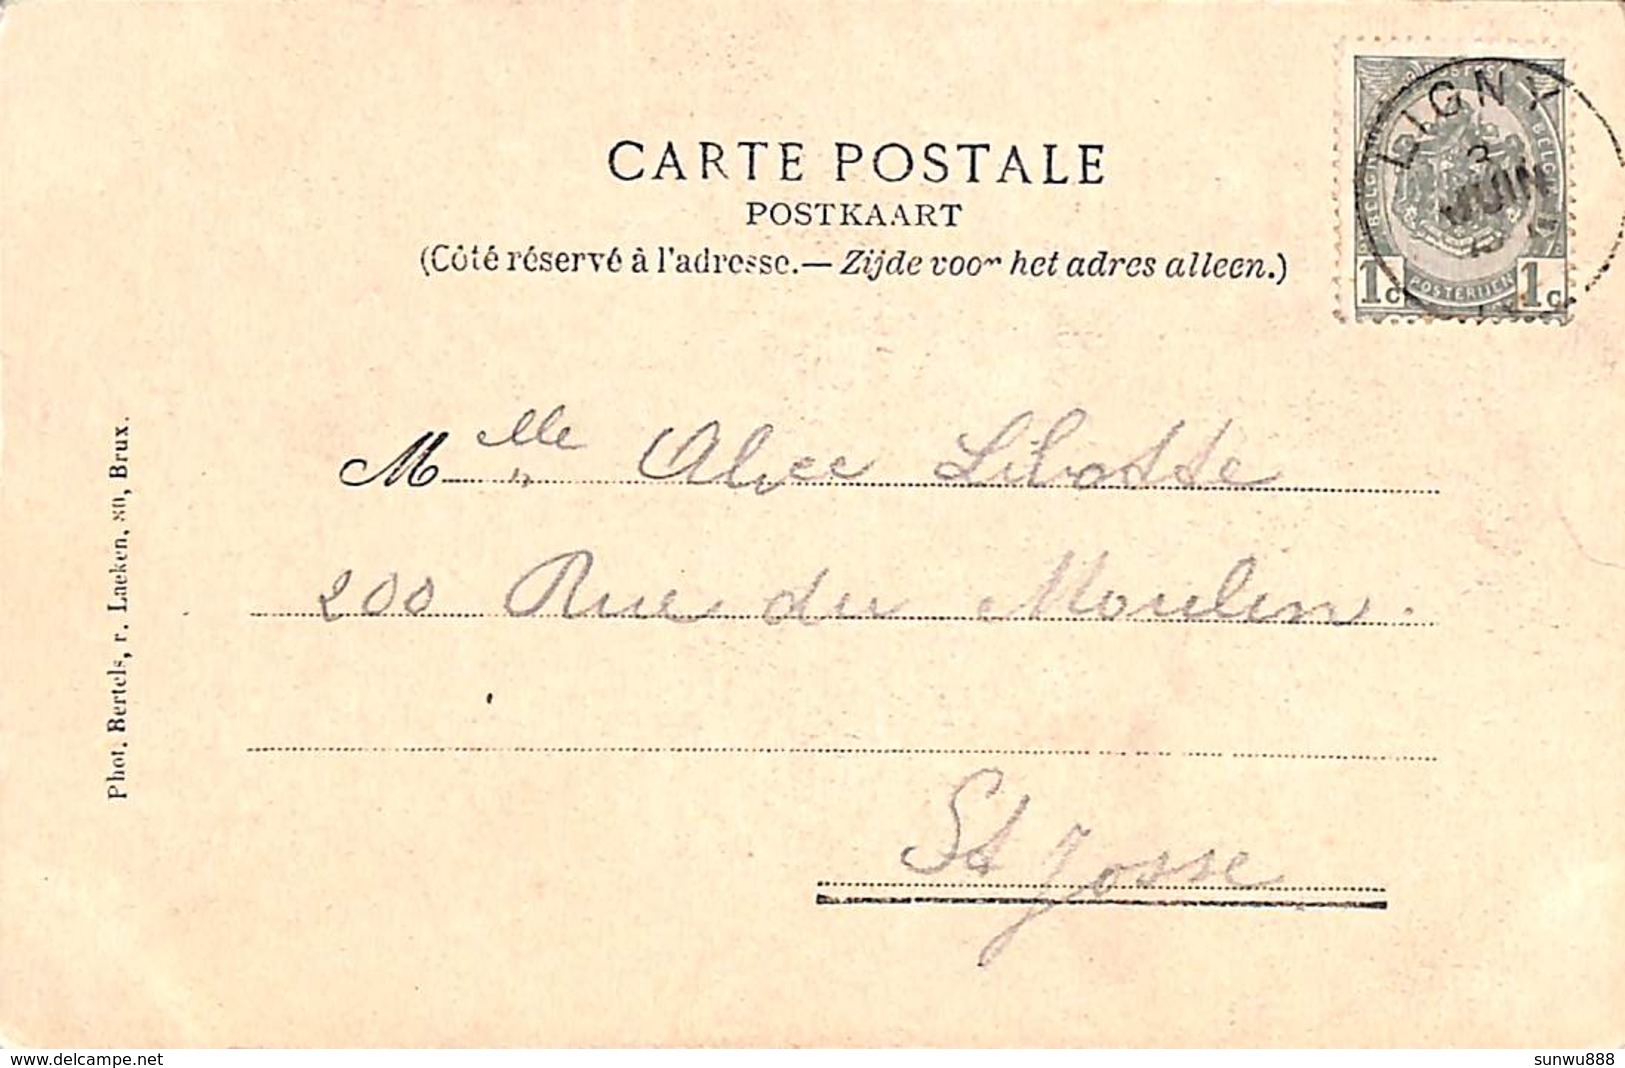 CARTE POSTALE
POSTKAART
(Côté réservé à l'adresse.— Zijde voor het adres alleen.)
POSTES
BELGIQUE
BELGIË
POSTERIJEN
1c 1c
LIGNY
3
JUIN
Mlle Alice Libotte
200 Rue du Moulin.
St Josse
Phot. Bertels, r. Laeken, 80, Brux.
www.delcampe.net
sunwu888